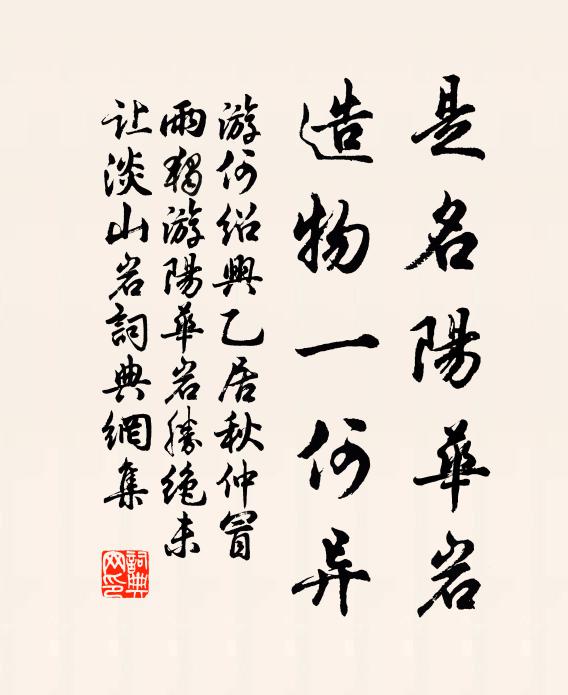 是名陽華岩
造物一何异
游何绍興乙居秋仲冒
雨獨游陽華岩勝绝未
让淡山岩詞典網集
詞典
网印